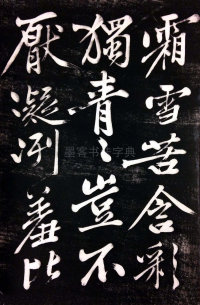 霜雪苦含彩
獨青〻豈不
厭凝冽羞比
墨客书法字典